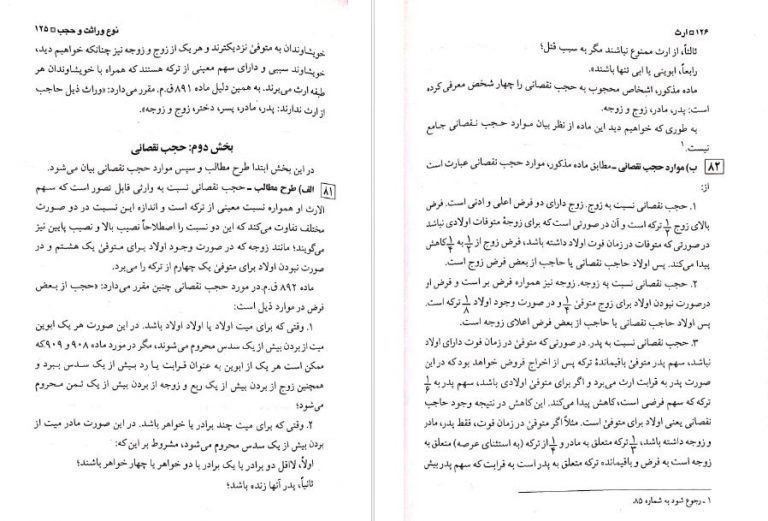 نوع وراثت و حجب □ ۱۲۵
خویشاوندان به متوفیٰ نزدیکترند و هر یک از زوج و زوجه نیز چنانکه خواهیم دید،
خویشاوند سببی و دارای سهم معینی از ترکه هستند که همراه با خویشاوندان هر
طبقه ارث می‌برند. به همین دلیل ماده ۸۹۱ ق.م. مقرر می‌دارد: «وراث ذیل حاجب
از ارث ندارند: پدر، مادر، پسر، دختر، زوج و زوجه».
بخش دوم: حجب نقصانی
در این بخش ابتدا طرح مطالب و سپس موارد حجب نقصانی بیان می‌شود.
۸۱ الف) طرح مطالب ـ حجب نقصانی نسبت به وارثی قابل تصور است که سهم
الارث او همواره نسبت معینی از ترکه است و اندازه این نسبت در دو صورت
مختلف تفاوت می‌کند که این دو نسبت را اصطلاحاً نصیب بالا و نصیب پایین نیز
می‌گویند؛ مانند زوجه که در صورت وجود اولاد برای متوفیٰ یک هشتم و در
صورت نبودن اولاد برای متوفیٰ یک چهارم از ترکه را می‌برد.
ماده ۸۹۲ ق.م. در مورد حجب نقصانی چنین مقرر می‌دارد: «حجب از بعض
فرض در موارد ذیل است:
۱. وقتی که برای میت اولاد یا اولاد اولاد باشد. در این صورت هر یک ابوین
میت از بردن بیش از یک سدس محروم می‌شوند، مگر در مورد ماده ۹۰۸ و ۹۰۹ که
ممکن است هر یک از ابوین به عنوان قرابت یا رد بیش از یک سدس ببرد و
همچنین زوج از بردن بیش از یک ربع و زوجه از بردن بیش از یک ثمن محروم
می‌شود؛
۲. وقتی که برای میت چند برادر یا خواهر باشد. در این صورت مادر میت از
بردن بیش از یک سدس محروم می‌شود، مشروط بر این که:
اولاً، لااقل دو برادر یا یک برادر با دو خواهر یا چهار خواهر باشند؛
ثانیاً، پدر آنها زنده باشد؛
۱۲۶ □ ارث
ثالثاً، از ارث ممنوع نباشند مگر به سبب قتل؛
رابعاً، ابوینی یا ابی تنها باشند».
ماده مذکور، اشخاص محجوب به حجب نقصانی را چهار شخص معرفی کرده
است: پدر، مادر، زوج و زوجه.
به طوری که خواهیم دید این ماده از نظر بیان موارد حجب نقصانی جامع
نیست.۱
۸۲ ب) موارد حجب نقصانی ـ مطابق ماده مذکور، موارد حجب نقصانی عبارت است
از:
۱. حجب نقصانی نسبت به زوج. زوج دارای دو فرض اعلی و ادنی است. فرض
بالای زوج ۱/۲ ترکه است و آن در صورتی است که برای زوجهٔ متوفات اولادی نباشد
در صورتی که متوفات در زمان فوت اولاد داشته باشد، فرض زوج از ۱/۲ به ۱/۴ کاهش
پیدا می‌کند. پس اولاد حاجب نقصانی یا حاجب از بعض فرض زوج است.
۲. حجب نقصانی نسبت به زوجه. زوجه نیز همواره فرض بر است و فرض او
درصورت نبودن اولاد برای زوج متوفیٰ ۱/۴ و در صورت وجود اولاد ۱/۸ ترکه است.
پس اولاد حاجب نقصانی یا حاجب از بعض فرض اعلای زوجه است.
۳. حجب نقصانی نسبت به پدر. در صورتی که متوفیٰ در زمان فوت دارای اولاد
نباشد، سهم پدر متوفیٰ باقیماندهٔ ترکه پس از اخراج فروض خواهد بود که در این
صورت پدر به قرابت ارث می‌برد و اگر برای متوفیٰ اولادی باشد، سهم پدر به ۱/۶
ترکه که سهم فرضی است، کاهش پیدا می‌کند. این کاهش در نتیجه وجود حاجب
نقصانی یعنی اولاد برای متوفیٰ است. مثلاً اگر متوفیٰ در زمان فوت، فقط پدر، مادر
و زوجه داشته باشد، ۱/۳ ترکه متعلق به مادر و ۱/۴ از ترکه (به استثنای عرصه) متعلق به
زوجه است به فرض و باقیمانده ترکه متعلق به پدر است به قرابت که سهم پدر بیش
۱ ـ رجوع شود به شماره ۸۵.